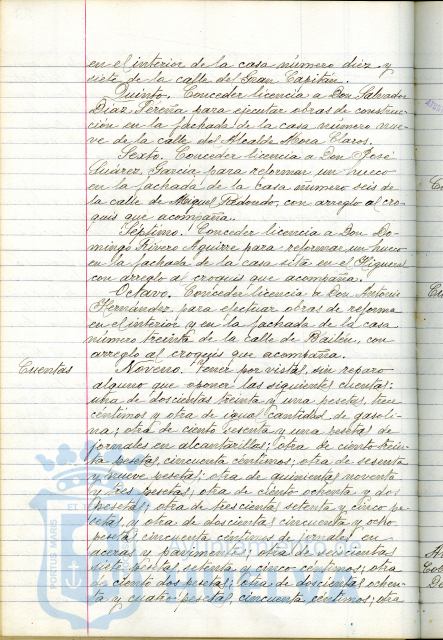 en el interior de la casa número diez y
siete de la calle del Gran Capitán.
Quinto. Conceder licencia a Don Salvador
Díaz Pereña para ejecutar obras de construc-
ción en la fachada de la casa número nue-
ve de la calle del Alcalde Mora Claros.
Sexto. Conceder licencia a Don José
Suárez García para reformar un hueco
en la fachada de la casa número seis de
la calle de Miguel Redondo, con arreglo al cro-
quis que acompaña.
Séptimo. Conceder licencia a Don Do-
mingo Rivero Aguirre para reformar un hueco
en la fachada de la casa sita en el Higueral
con arreglo al croquis que acompaña.
Octavo. Conceder licencia a Don Antonio
Hernández para efectuar obras de reforma
en el interior y en la fachada de la casa
número treinta de la calle de Bailén, con
arreglo al croquis que acompaña.
Cuentas
Noveno. Tener por vistas, sin reparo
alguno que oponer las siguientes cuentas:
una de doscientas treinta y una pesetas, trece
céntimos y otra de igual cantidad de gasoli-
na; otra de ciento sesenta y una pesetas de
jornales en alcantarillas; otra de ciento trein-
ta pesetas, cincuenta céntimos; otra de sesenta
y nueve pesetas; otra de quinientas noventa
y tres pesetas; otra de ciento ochenta y dos
pesetas; otra de trescientas setenta y cinco pe-
setas, y otra de doscientas cincuenta y ocho
pesetas cincuenta céntimos de jornales en
aceras y pavimentos; otra de seiscientas
siete pesetas setenta y cinco céntimos; otra
de ciento dos pesetas; otra de doscientas ochen-
ta y cuatro pesetas, cincuenta céntimos; otra
PORTUS MARIS ET